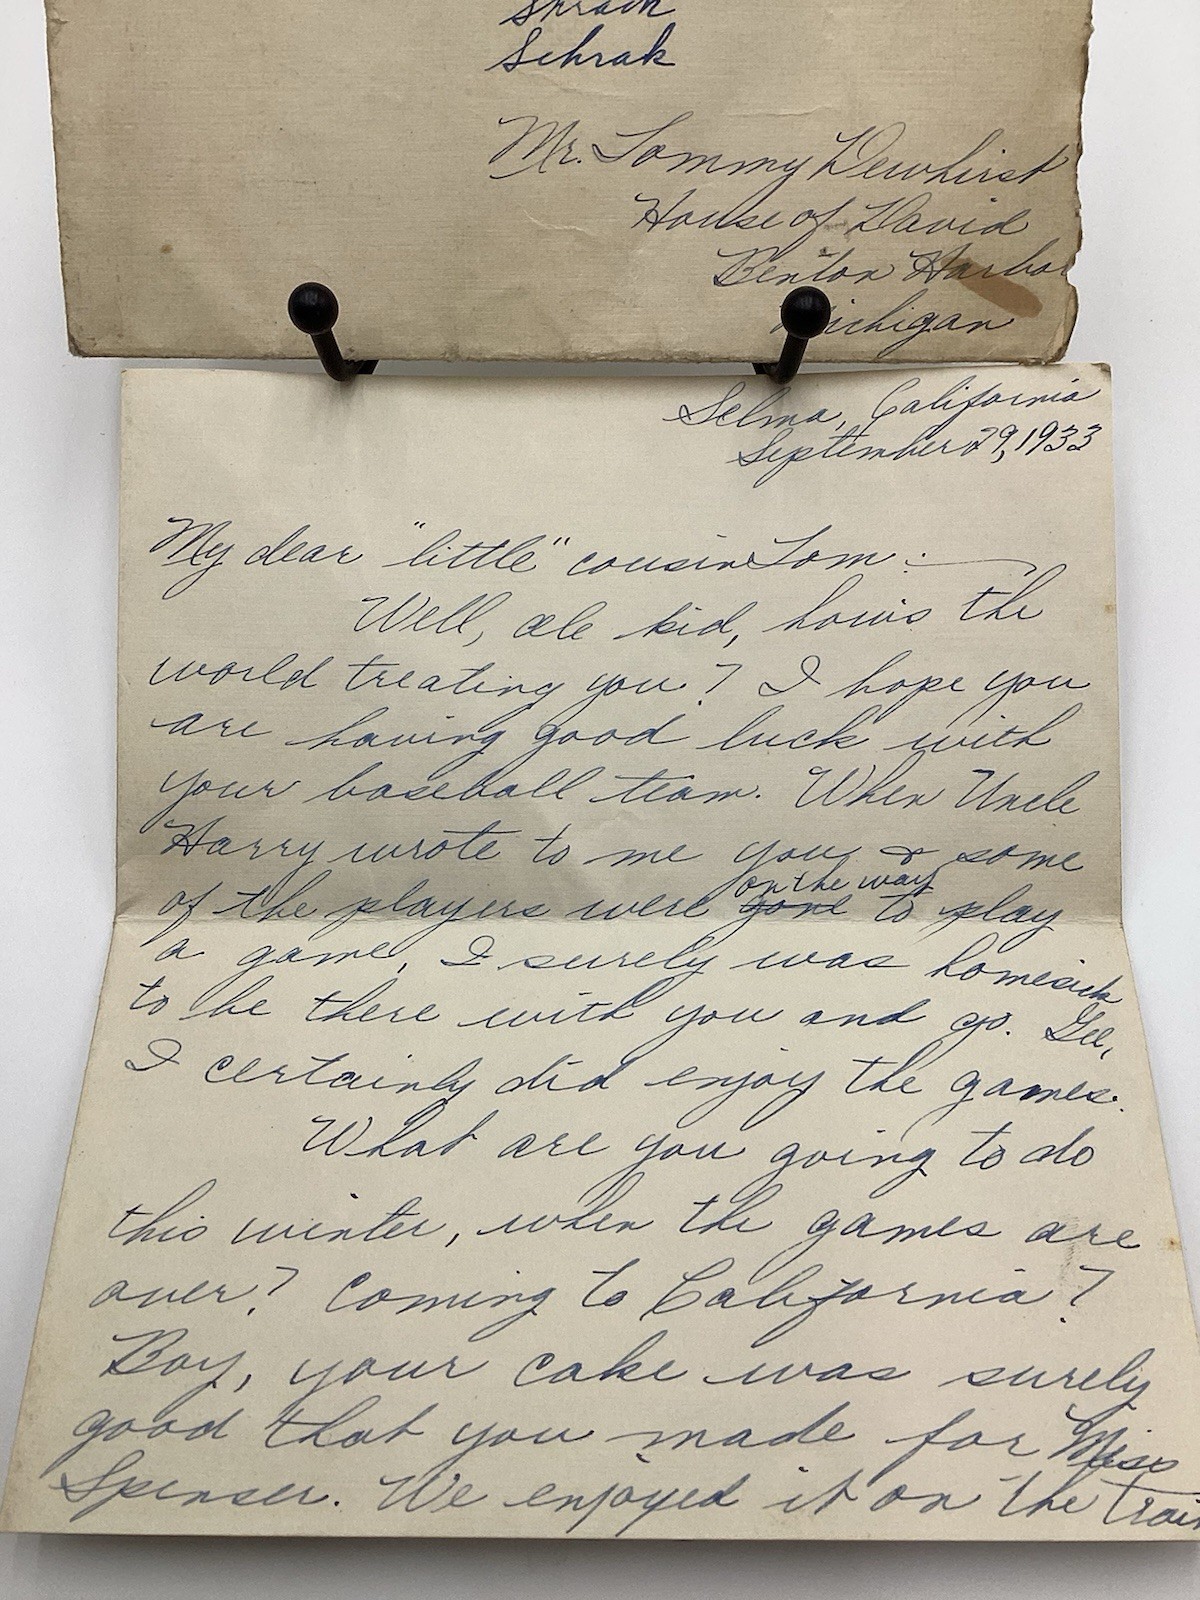 Schrak
Mr. Tommy Dewhirst
House of David
Benton Harbor
Michigan
Selma, California
September 29, 1933
My dear "little" cousin Tom:
Well, ole kid, hows the
world treating you? I hope you
are having good luck with
your baseball team. When Uncle
Harry wrote to me you & some
on the way
of the players were gone to play
a game, I surely was homesick
to be there with you and go. Gee,
I certainly did enjoy the games.
What are you going to do
this winter, when the games are
over? Coming to California?
Boy, your cake was surely
good that you made for Miss
Spenser. We enjoyed it on the train